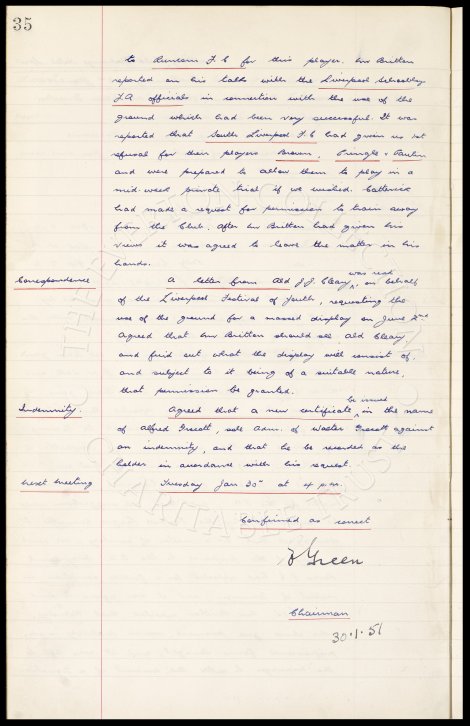 35
to Runcorn F.C for this player. Mr Britton
reported on his talks with the Liverpool Schoolboy
F.A officials in connection with the use of the
ground which had been very successful. It was
reported that South Liverpool F.C had given us 1st
refusal for their players Brown, Pringle &
and were prepared to allow them to play in a
mid-week private trial if we wished. Catterick
had made a request for permission to train away
from the Club. After Mr Britton had given his
views it was agreed to leave the matter in his
hands.
Correspondence A letter from Ald J.J. Cleary was read on behalf
of the Liverpool Festival of Youth, requesting the
use of the ground for a massed display on June 2nd
Agreed that Mr Britton should see Ald Cleary
and find out what the display will consist of.
and subject to it being of a suitable nature,
that permission be granted.
Indemnity. Agreed that a new certificate be issued in the name
of Alfred, sole Adm. of Walter against
an indemnity, and that he be recorded as the
holder in accordance with his request.
Next Meeting Tuesday Jan 30th at 4 p.m.
Confirmed as correct
Green
Chairman
30.1.51
THE EVERTON
CHARITABLE TRUST